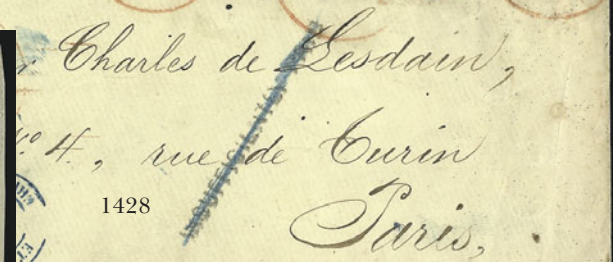 Charles de Lesdain,
No 4, rue de Turin
1428
Paris,